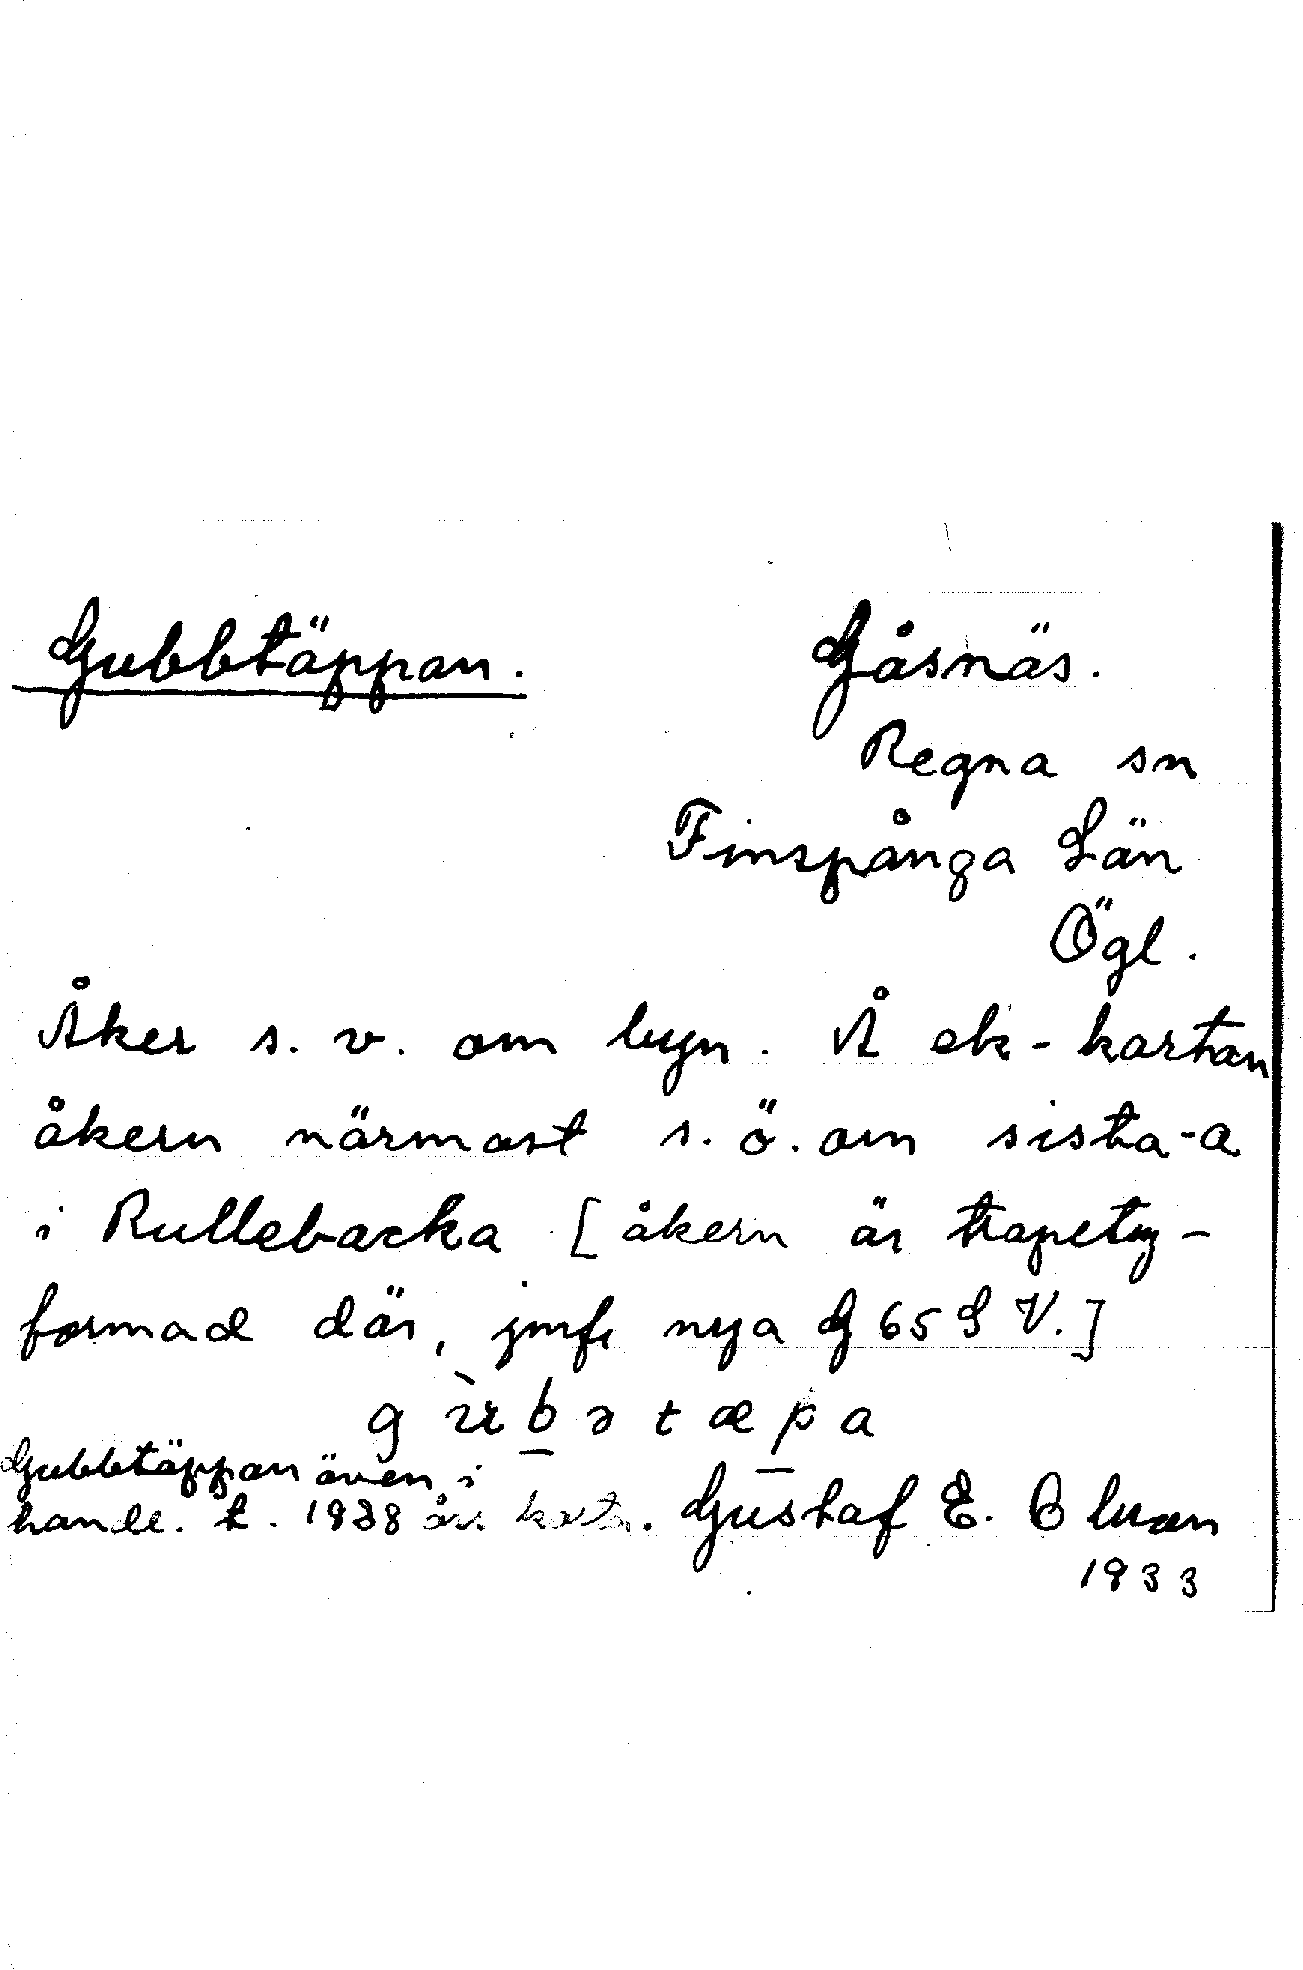 Gubbtäppan. Gåsnäs.
Regna sn
Finspånga Län
Ögl.
Åker s. v. om byn. Å ek-kartan
åkern närmast s. ö. om sista -a
i Rullebacka [åkern är trapets-
formad där, jmfr nya G 65 S V.]
Gubbtäppan även i
handl. t. 1938 års karta. Gustaf E. Elman
1933